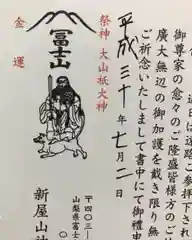 御尊家の愈々のご隆盛皆様方のご
廣大無辺の御加護を戴き限り無
ご祈念いたしまして書中にて御禮申
平成三十年七月二日
祭神 大山祇大神
冨士山
金運
新屋山神
〒四〇三―
山梨県富士